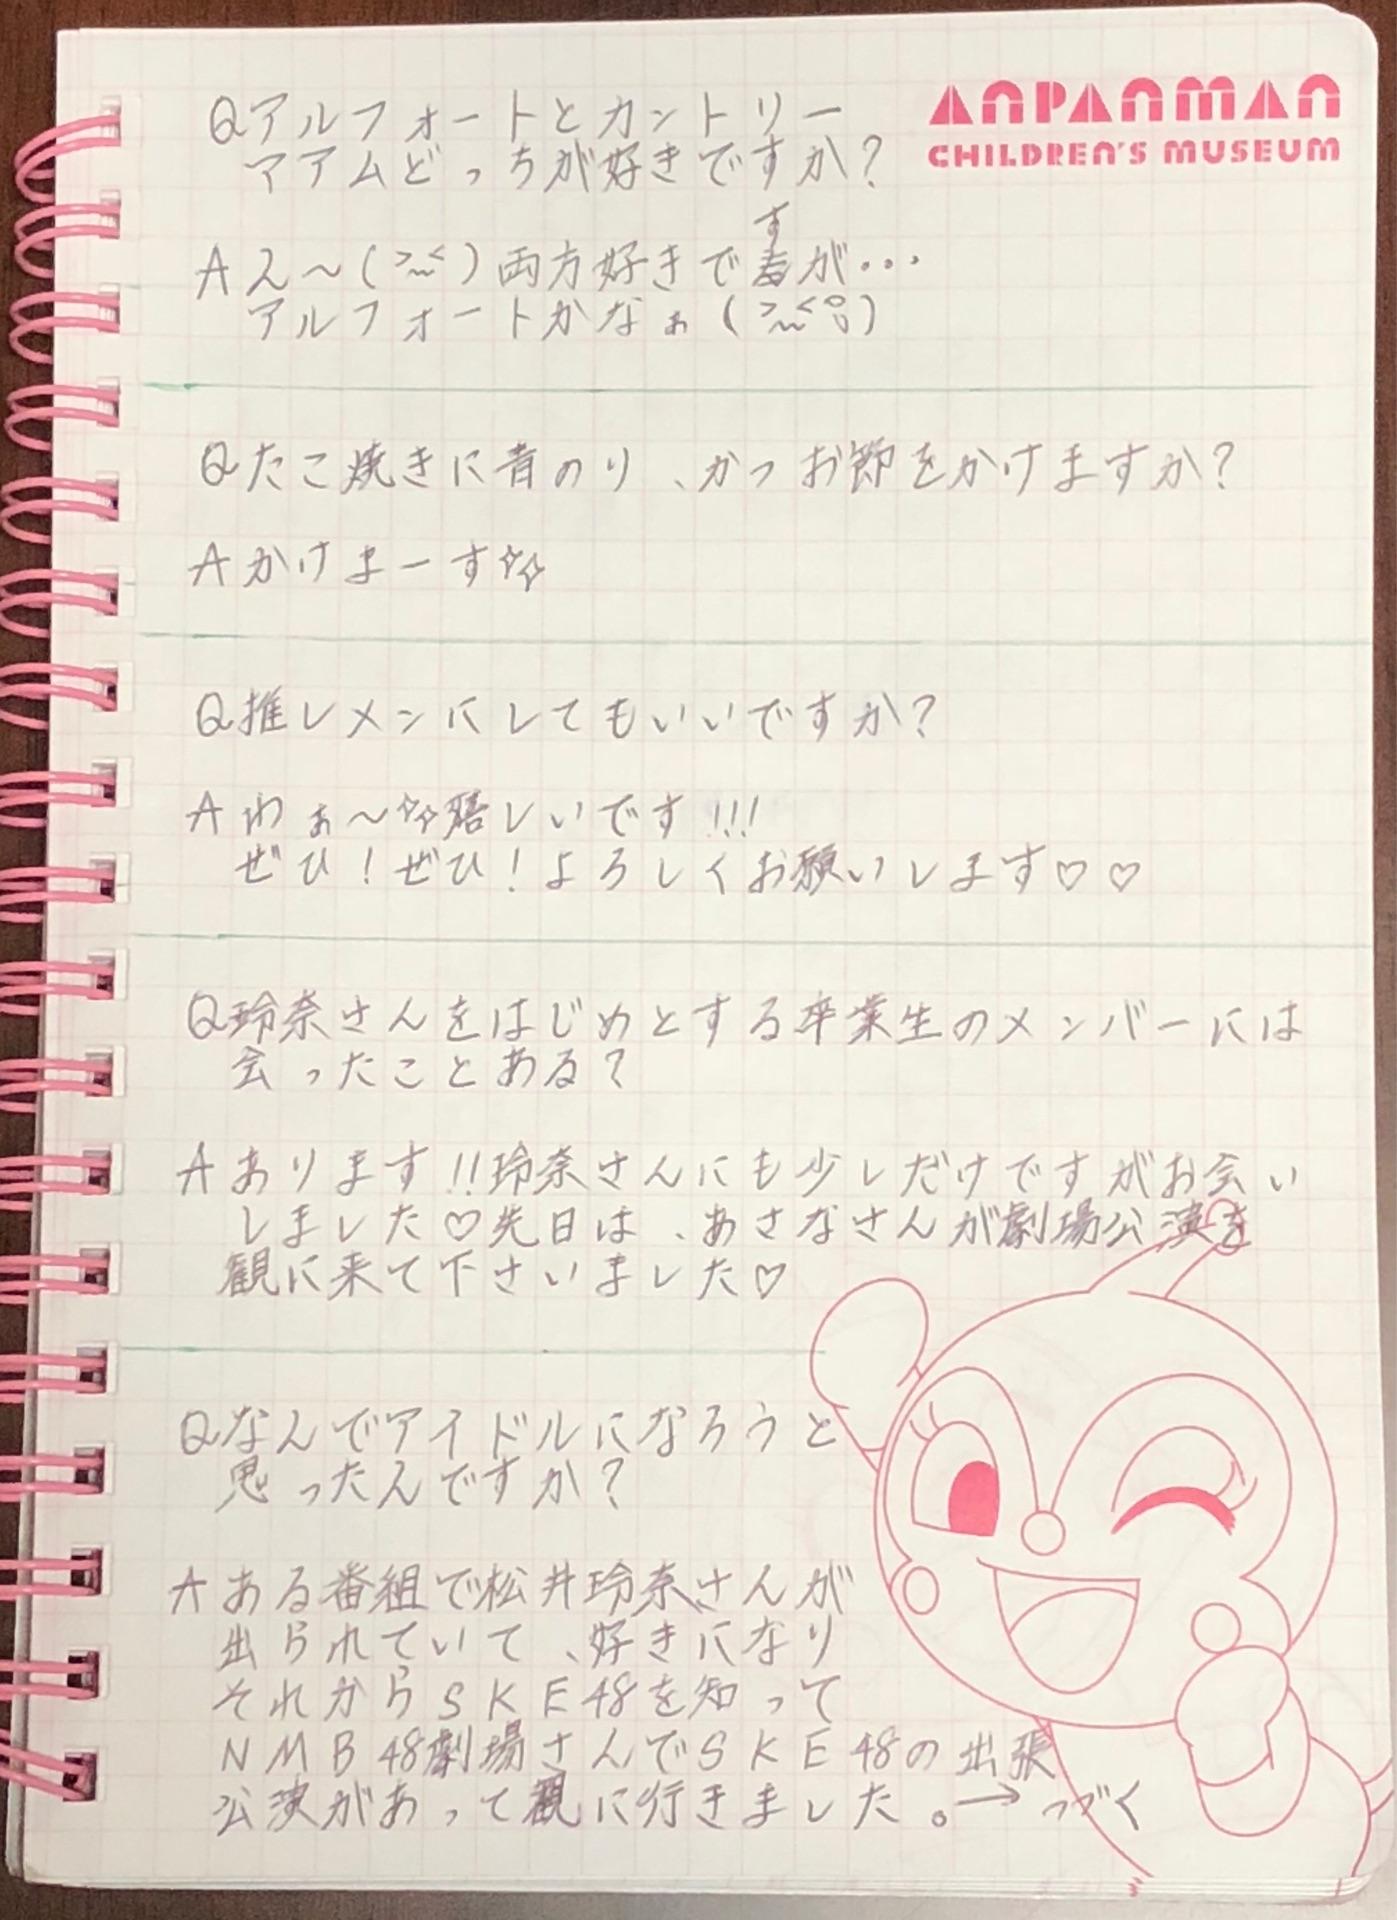 ANPANMAN
CHILDREN'S MUSEUM
Qアルフォートとカントリー
マアムどっちが好きですか?
Aえ〜(>~<)両方好きですが…
アルフォートかなぁ(>~<°)
Qたこ焼きに青のり、かつお節をかけますか?
Aかけまーす✨
Q推しメンにしてもいいですか?
Aわぁ〜✨嬉しいです!!!
ぜひ!ぜひ!よろしくお願いします♡♡
Q玲奈さんをはじめとする卒業生のメンバーには
会ったことある?
Aあります!!玲奈さんにも少しだけですがお会い
しました♡先日は、あさなさんが劇場公演を
観に来て下さいました♡
Qなんでアイドルになろうと
思ったんですか?
Aある番組で松井玲奈さんが
出られていて、好きになり
それからSKE48を知って
NMB48劇場さんでSKE48の出張
公演があって観に行きました。→つづく